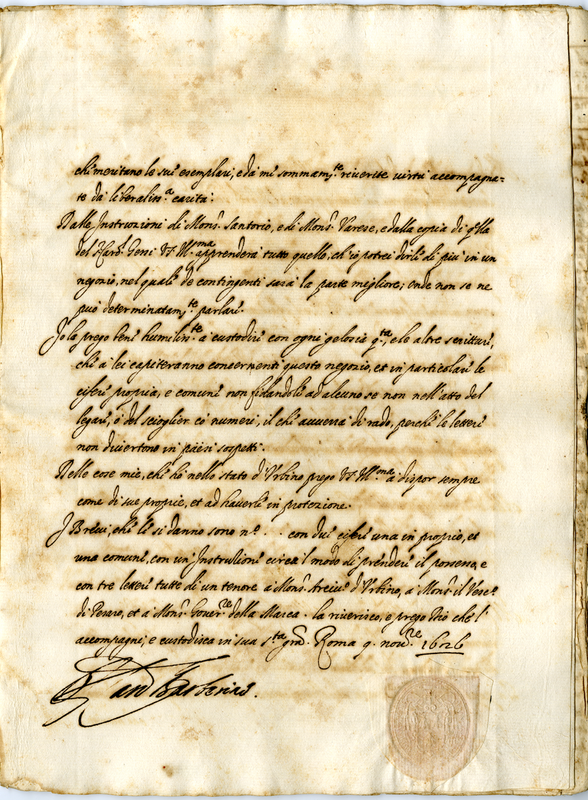 che meritano le sue esemplari, e da me sommam.te riverite virtù accompagna-
te da liberaliss.a carità.
Dalle Instruzioni di Mons.r Santorio, e di Mons.r Varese, e dalla copia di q.lla
del Gessi V.S. Ill.ma apprenderà tutto quello, ch'io potrei dirle di più in un
negozio, nel quale de contingenti sarà la parte migliore; onde non se ne
può determinatam.te parlare.
Io la prego bene humiliss.te a custodire con ogni gelosia q.ta, e le altre scritture,
che a lei capiteranno concernenti questo negozio, et in particolare le
cifere propria, e comune non fidandole ad alcuno se non nell'atto del
legare, ò del scioglier co' numeri, il che avverrà di rado, perche le lettere
non divertono in paesi sospetti.
Delle cose mie, che hò nello stato d'Urbino prego V.S. Ill.ma à dispor sempre
come di sue proprie, et ad haverle in protezione.
I Brevi, che le si danno sono n.o . . con due cifere una in proprio, et
una comune, con un'Instruzione circa il modo di prendere il possesso, e
con tre lettere tutte di un tenore a Mons.r Arciv.o d'Urbino, a Mons.r il Vesc.o
di Pesaro, et a Mons.r Gover.re della Marca. la riverisco, e prego Dio che l'
accompagni, e custodisca in sua s.ta gra. Roma 9. nov.re 1626
Card Barberino.